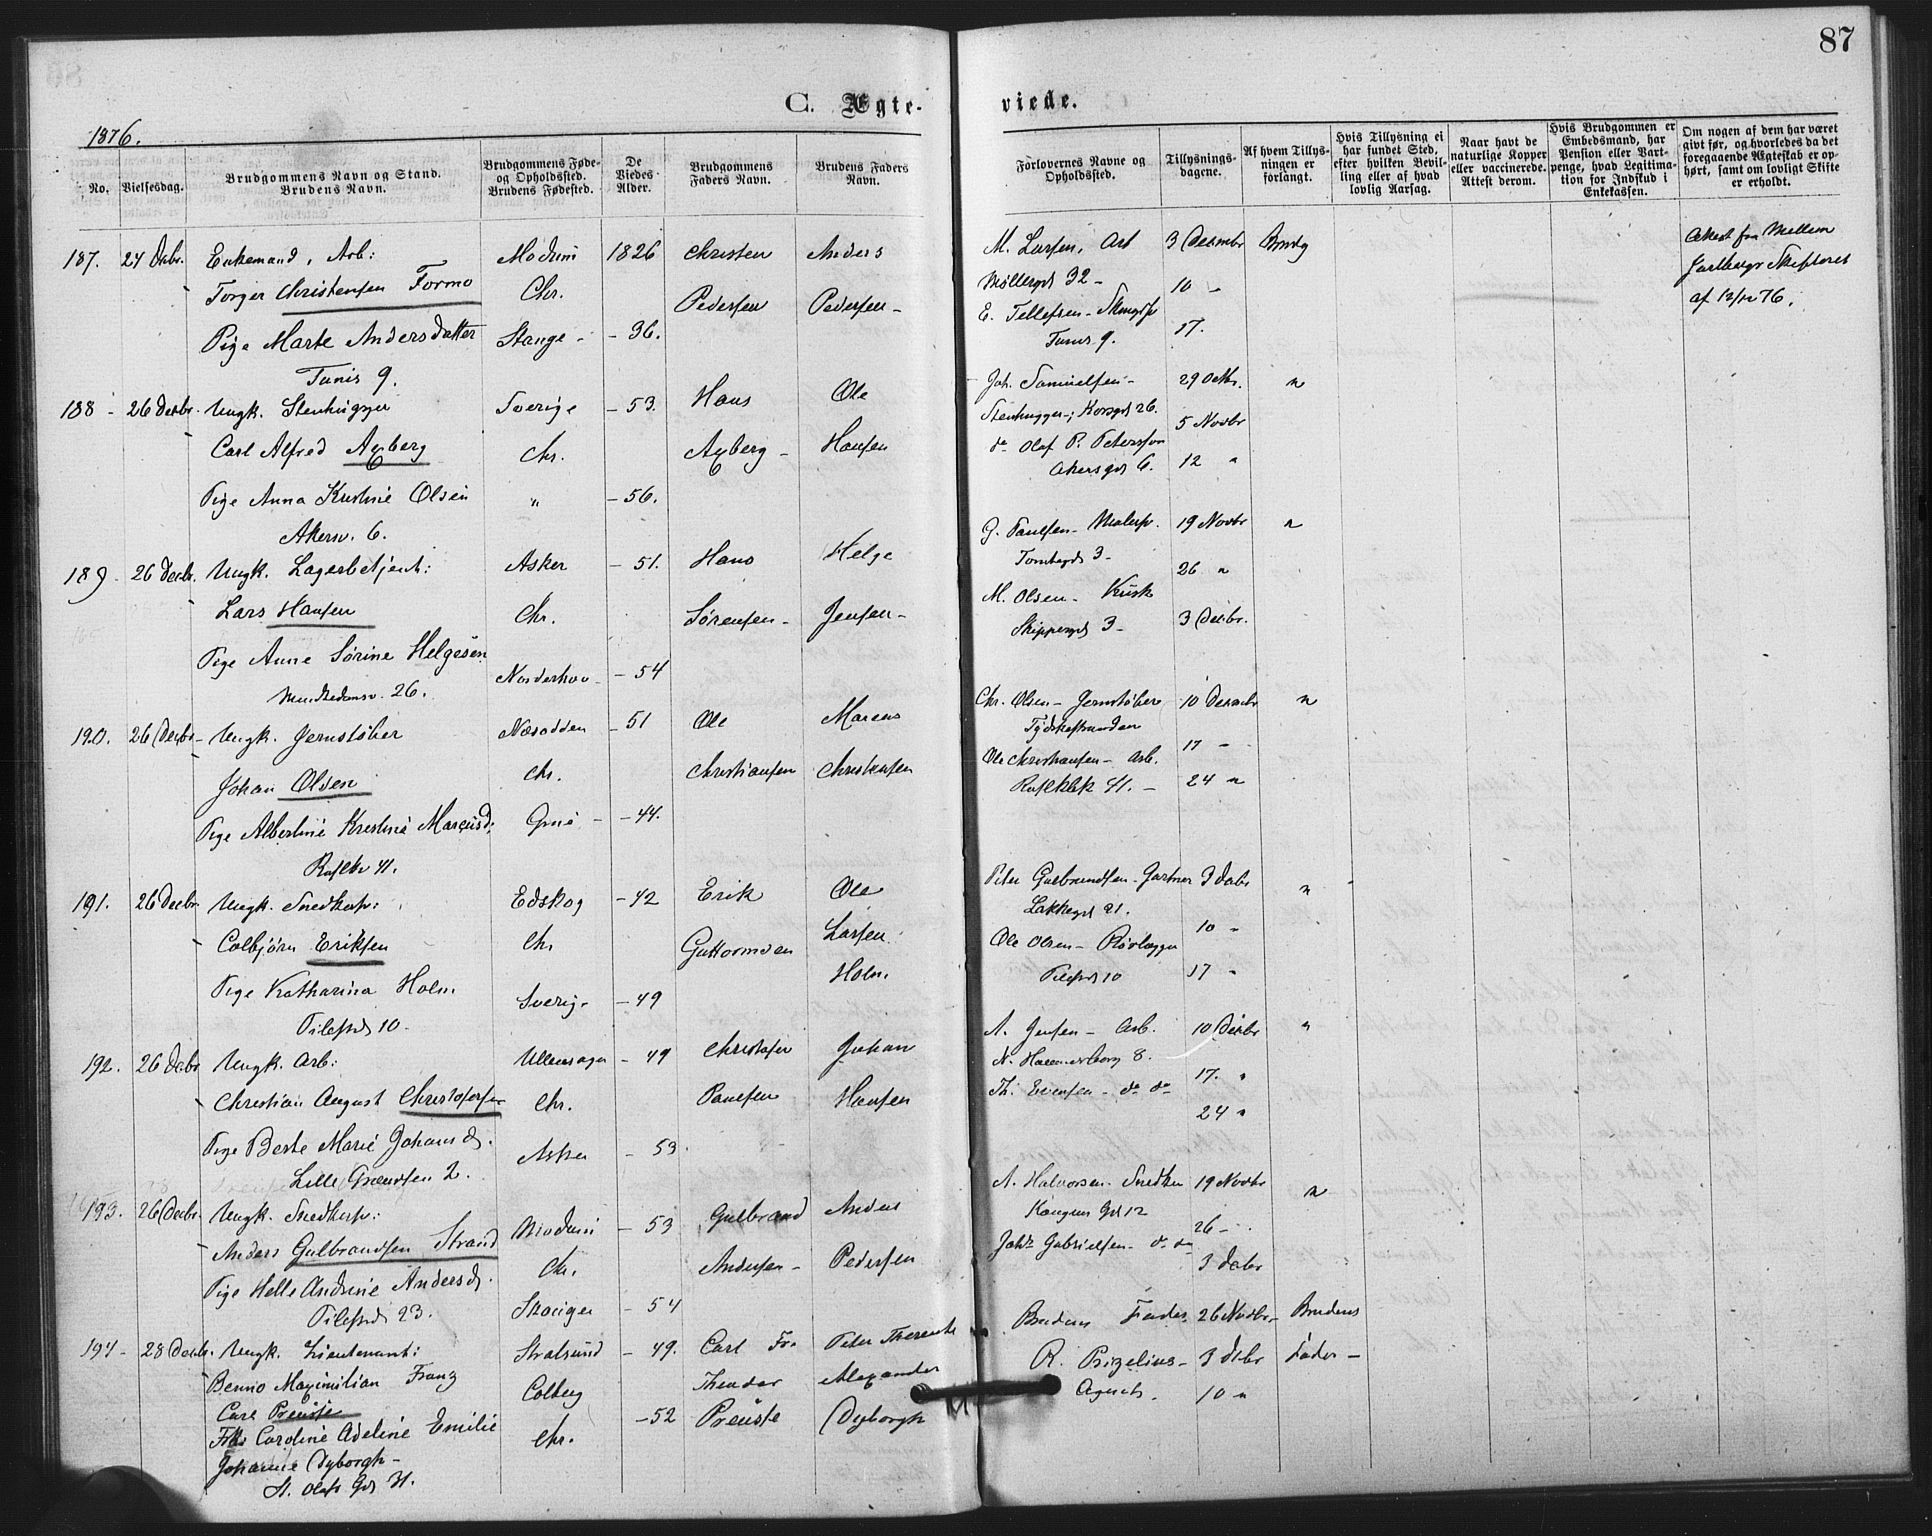 87
C. Ægte-
viede.
1876.
No.
Vielsesdag.
Brudgommens Navn og Stand.
Brudens Navn.
Brudgommens Føde-
og Opholdssted.
Brudens Fødested.
De
Viedes
Alder.
Brudgommens
Faders Navn.
Brudens Faders
Navn.
Forlovernes Navne og
Opholdssted.
Tillysnings-
dagene.
Af hvem Tillys-
ningen er
forlangt.
Hvis Tillysning ei
har fundet Sted,
efter hvilken Bevil-
ling eller af hvad
lovlig Aarsag.
Naar havt de
naturlige Kopper
eller vaccinerede.
Attest derom.
Hvis Brudgommen er
Embedsmand, har
Pension eller Vart-
penge, hvad Legitima-
tion for Indskud i
Enkekassen.
Om nogen af dem har været
givt før, og hvorledes da det
foregaaende Ægteskab er op-
hørt, samt om lovligt Skifte
er erholdt.
187. 24 Decbr. Enkemand, Arb: Modum 1826 Christen Anders
Torger Christensen Formo Chr. Pedersen Pedersen
Pige Marte Andersdatter Stange - 36.
Tunis 9.
M. Larsen, Arb 3 Decembr Brudg
Møllergd 32 - 10 -
E. Tellefsen - 17.
Tunis 9.
Attest fra Mellem
Jarlsbergs Skifteret
af 12/12 76.
188 - 26 Decbr. Ungk. Stenhugger Sverige - 53. Hans Ole
Carl Alfred Axberg Chr. Axberg - Hansen
Pige Anna Kristine Olsen " - 56.
Akersv. 6.
Joh. Samuelsen - 29 Octbr. "
Stenhugger; Korsgd 26. 5 Novbr
do Olaf P. Petersson
Akersgd 6. 12 "
189 - 26 Decbr. Ungk. Lagerbetjent: Asker - 51. Hans Helge
Lars Hansen Chr. Sørensen - Jensen -
Pige Anne Sørine Helgesen Norderhov - 54
Munkedamsv. 26.
G. Paulsen - Malersv. 19 Novbr "
Tomtegd 3 - 26 "
M. Olsen - Kusk
Skippergd 3 - 3 Decbr.
190. 26 Decbr - Ungk. Jernstøber Næsodden - 51 Ole Marcus
Johan Olsen Chr. Christiansen Christensen
Pige Albertine Kristine Marcusd. Grue - - 44.
41.
Chr. Olsen - Jernstøber 10 Decembr "
Tydskestranden
17 -
Ole Christiansen - Arb.
41. - 24 "
191. 26 Decbr. Ungk. Snedkersv: Edskog - 42 Erik Ole
Colbjørn Eriksen Chr Guttormsen Larsen
Pige Katharina Holm Sverige - 49 Holm.
Pilestrd 10 -
Peter Gulbrandsen - Gartner 3 Decbr "
Lakkegd 21.
10 -
Ole Olsen - Rørlægger
Pilestrd 10 17 "
192. 26 Decbr Ungk. Arb: Ullensager - 49 Christofer Johan
Christian August Christofersen Chr. Paulsen Hansen
Pige Berte Marie Johansd. Asker - 53.
Lille Grændsen 2.
A. Jensen - Arb. 10 Decbr "
N. Hammersborg 8.
17. "
Th. Evensen - do do
24 "
193. 26 Decbr. Ungk. Snedkersv: Modum - 53 Gulbrand Anders
Anders Gulbrandsen Strand Chr. Andersen - Pedersen
Pige Helle Andrine Andersd. Skouger - 54
Pilestrd 23.
A. Halvorsen - Snedker 19 Novbr "
Kongens Gd 12
26 -
Johs Gabrielsen - do do
3 Decbr
194 - 28 Decbr. Ungk. Lieutenant: Stralsund - 49. Carl Fr. Peter
Benno Maximilian Franz Colberg Theodor Alexander
Carl Preuste - 52 Preuste Dyborgh
Frk. Caroline Adeline Emilie Chr.
Johanne Dyborgh -
St. Olafs Gd 31.
Brudens Fader 26 Novbr - Brudens
R. Prizelius - 3 Decbr Fader -
Agent. 10 "